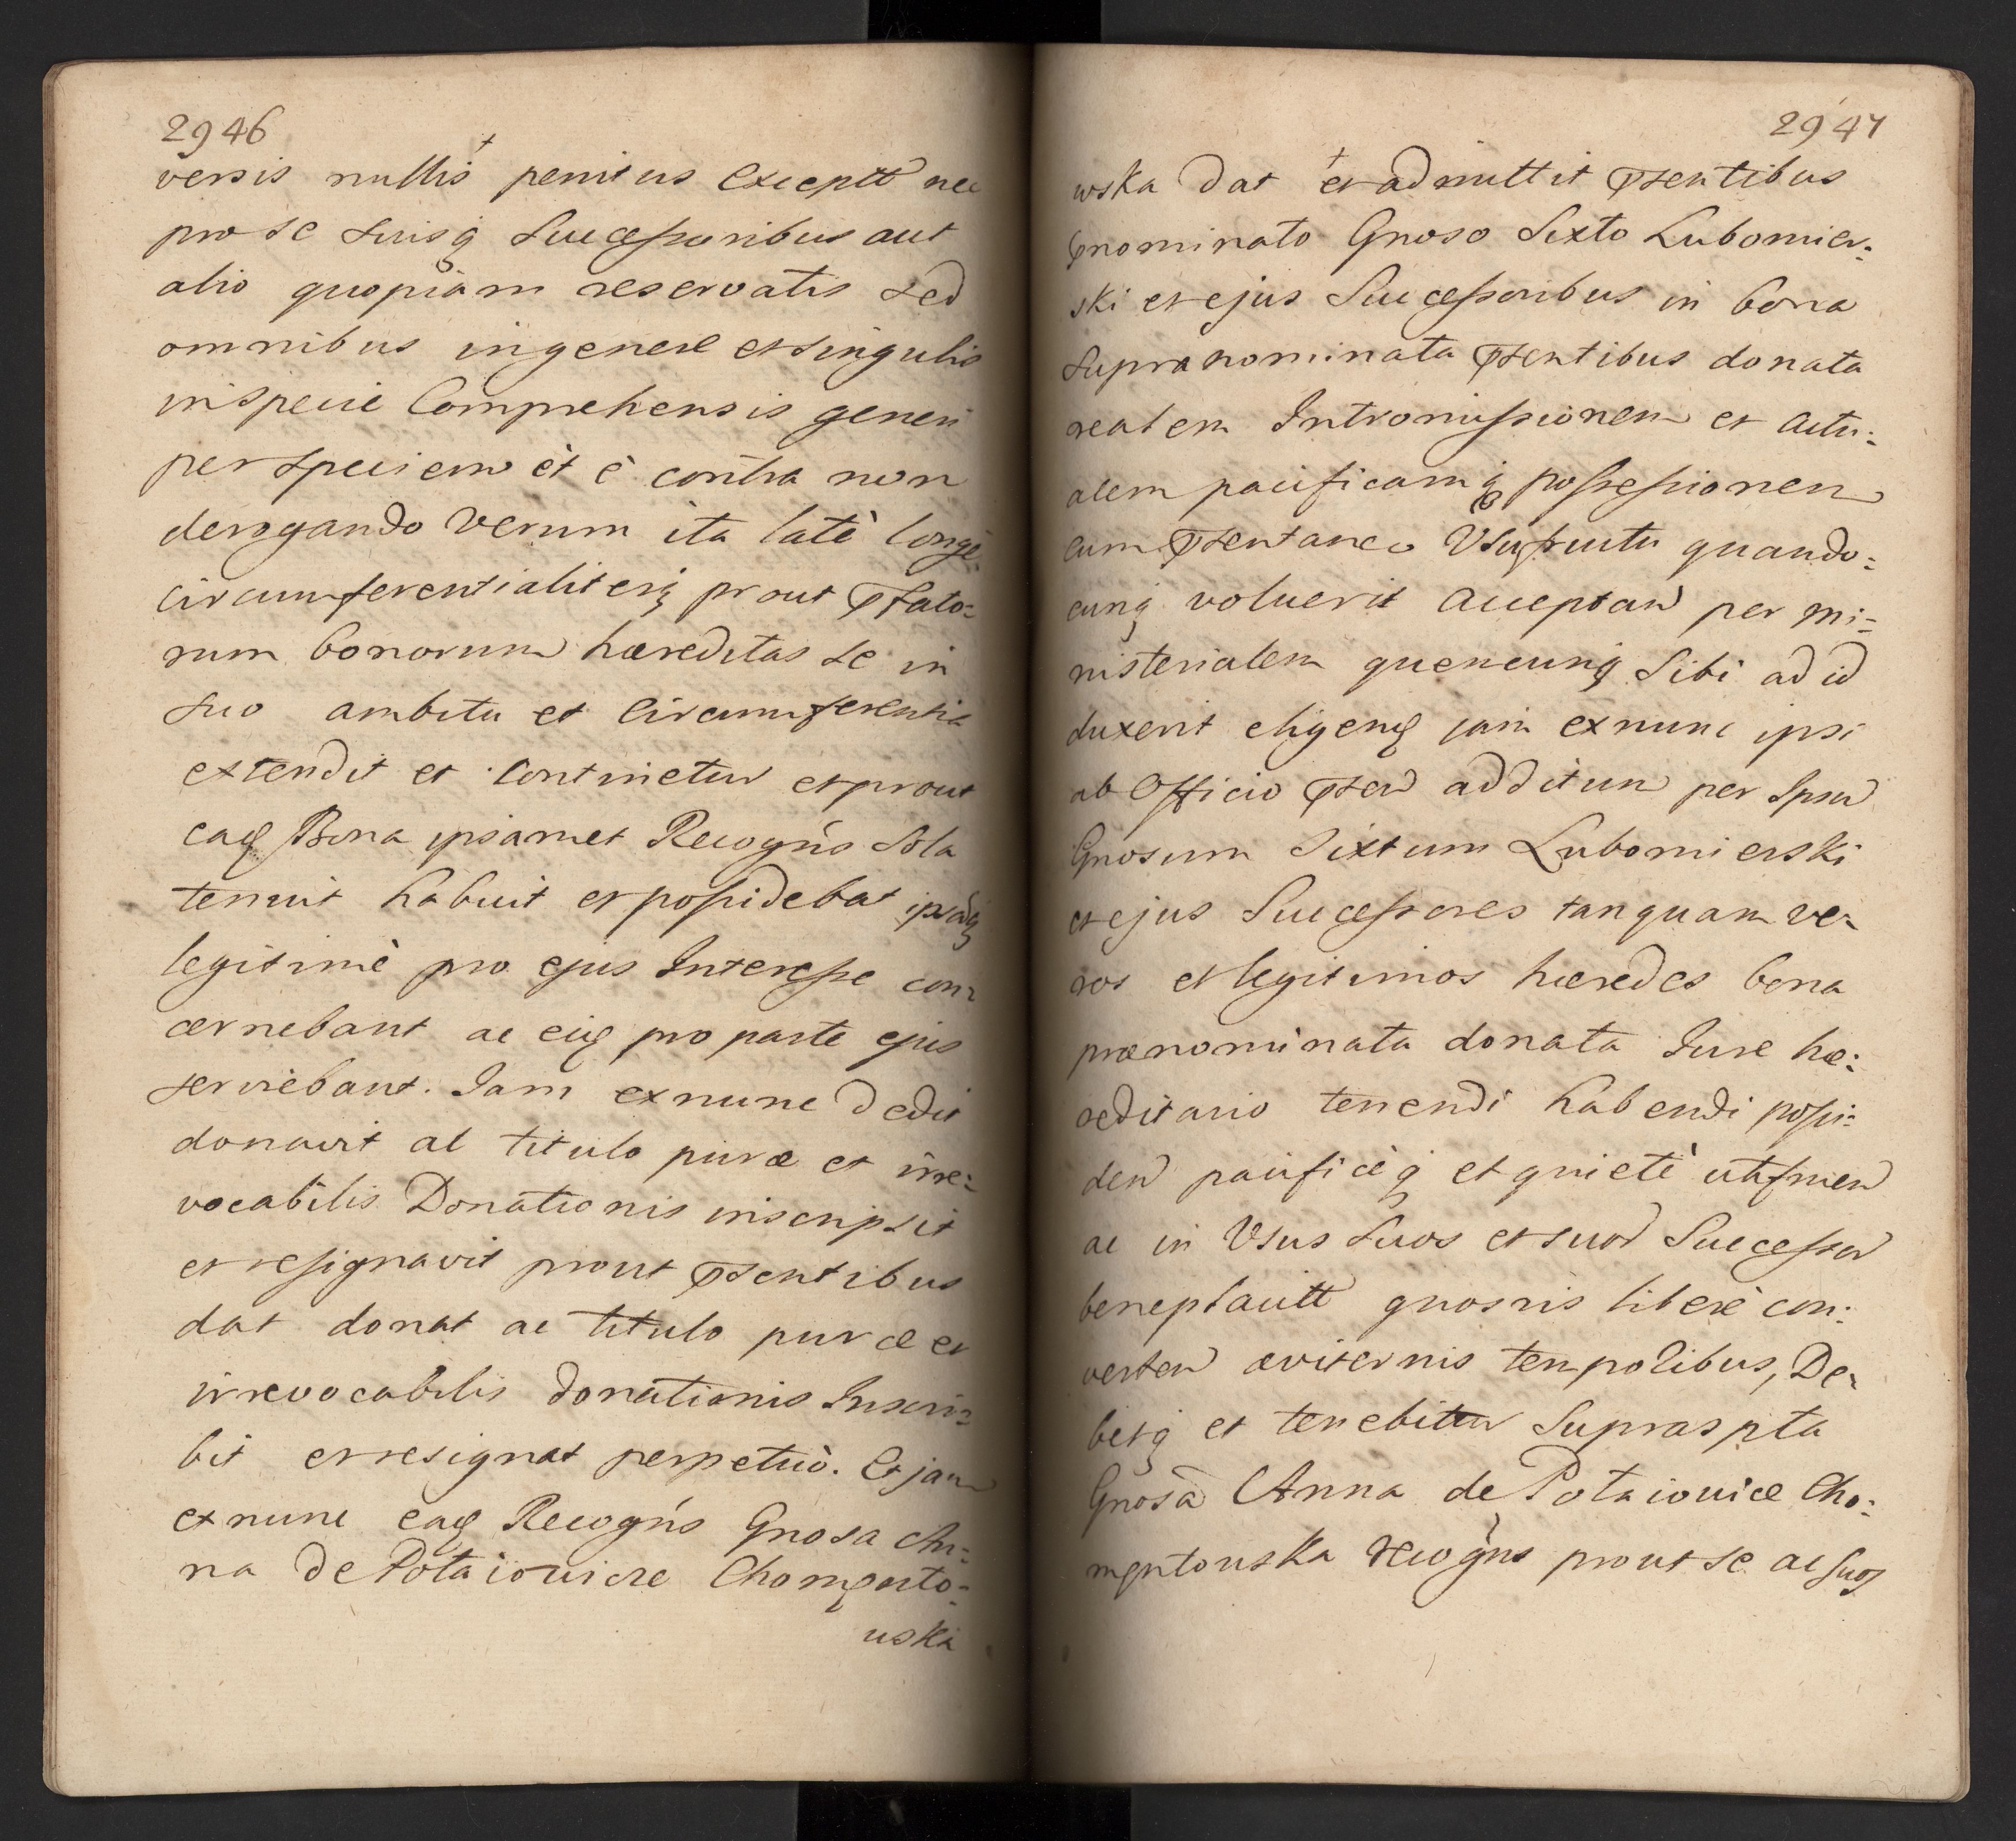 2946
versis nullis penitus exceptt nec
pro se suisq Successoribus aut
alio quopiam reservatis sed
omnibus in genere et singulis
in specie Comprehensis generi
per speciem èt è contra non
derogando verum ita latè longè
circumferentialiterq prout pfato=
rum bonorum hæreditas se in
suo ambitu et Circumferentia
extendit et Continetur et prout
eaq Bona ipsamet Recogns Sola
tenuit habuit et possidebat
legitimè pro ejus Interesse con=
cernebant ac eiq pro parte ejus
serviebant. Iam exnunc dedit
donavit ac titulo puræ et irre=
vocabilis Donationis inscripsit
et resignavit prout psentibus
dat donat ac titulo puræ et
irrevocabilis donationis Inscri=
bit et resignat perpetuò. Et jam
exnunc eaq Recogns Gnosa An=
na de Potaiowicze Chomento=
uska
2947
wska dat et admittit psentibus
pnominato Gnoso Sixto Lubomier=
ski et ejus Successoribus in bona
supranominata psentibus donata
realem Intromissionem et actu=
alem pacificamq possessionem
cum psentaneo Usufructu quando=
cunq voluerit acceptan per mi=
nisterialem quemcunq Sibi ad id
duxerit eligenq jam exnunc ipsi
ab Officio psen additum per Ipsu
Gnosum Sixtum Lubomierski
et ejus Successores tanquam ve=
ros et legitimos hæredes bona
prænominata donata Iure hæ=
reditario tenendi habendi possi=
den pacificèq et quietè utifruen
ac in Usus suos et suor Successor
beneplacitt quosvis liberè con=
verten æviternis temporibus, De=
betq et tenebitur Supraspta
Gnosa Anna de Potaiowicze Cho=
mentouska recogns prout se ac suos